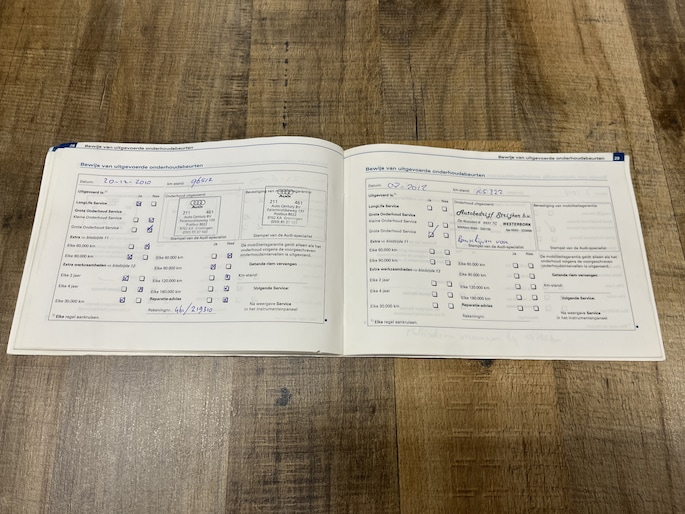 28 Bewijs van uitgevoerde onderhoudsbeurten
Bewijs van uitgevoerde onderhoudsbeurten
Datum: 20-12-2010 km-stand: 96512
Uitgevoerd is
Ja Nee
LongLife Service
Grote Onderhoud Service
Kleine Onderhoud Service
Grote Onderhoud Service
Extra
Elke 60.000 km
Elke 90.000 km
Extra werkzaamheden
Elke 2 jaar
Elke 4 jaar
Elke 30.000 km
Onderhoud uitgevoerd:
Audi
211 461
Auto Century BV
Postbus 8022
Groningen
Stempel van de Audi-specialist
Ja Nee
Elke 60.000 km
Elke 90.000 km
Elke 120.000 km
Elke 180.000 km
Reparatie-advies
Rekeningnr.
Audi
211 461
Auto Century BV
Postbus 8022
Groningen
Stempel van de Audi-specialist
De mobiliteitsgarantie geldt alleen als het
onderhoud volgens de voorgeschreven
onderhoudsintervallen is uitgevoerd.
Getande riem vervangen:
Km-stand:
Volgende Service:
Na weergave Service
in het instrumentenpaneel
Elke regel aankruisen.
Bewijs van uitgevoerde onderhoudsbeurten 29
Bewijs van uitgevoerde onderhoudsbeurten
Datum: km-stand:
Uitgevoerd is
Ja Nee
LongLife Service
Grote Onderhoud Service
Kleine Onderhoud Service
Grote Onderhoud Service
Extra
Elke 60.000 km
Elke 90.000 km
Extra werkzaamheden
Elke 2 jaar
Elke 4 jaar
Elke 30.000 km
Onderhoud uitgevoerd:
WESTERBORK
Ja Nee
Elke 60.000 km
Elke 90.000 km
Elke 120.000 km
Elke 180.000 km
Reparatie-advies
Rekeningnr.
Bevestiging van mobiliteitsgarantie:
Stempel van de Audi-specialist
De mobiliteitsgarantie geldt alleen als het
onderhoud volgens de voorgeschreven
onderhoudsintervallen is uitgevoerd.
Getande riem vervangen:
Km-stand:
Volgende Service:
Na weergave Service
in het instrumentenpaneel
Elke regel aankruisen.